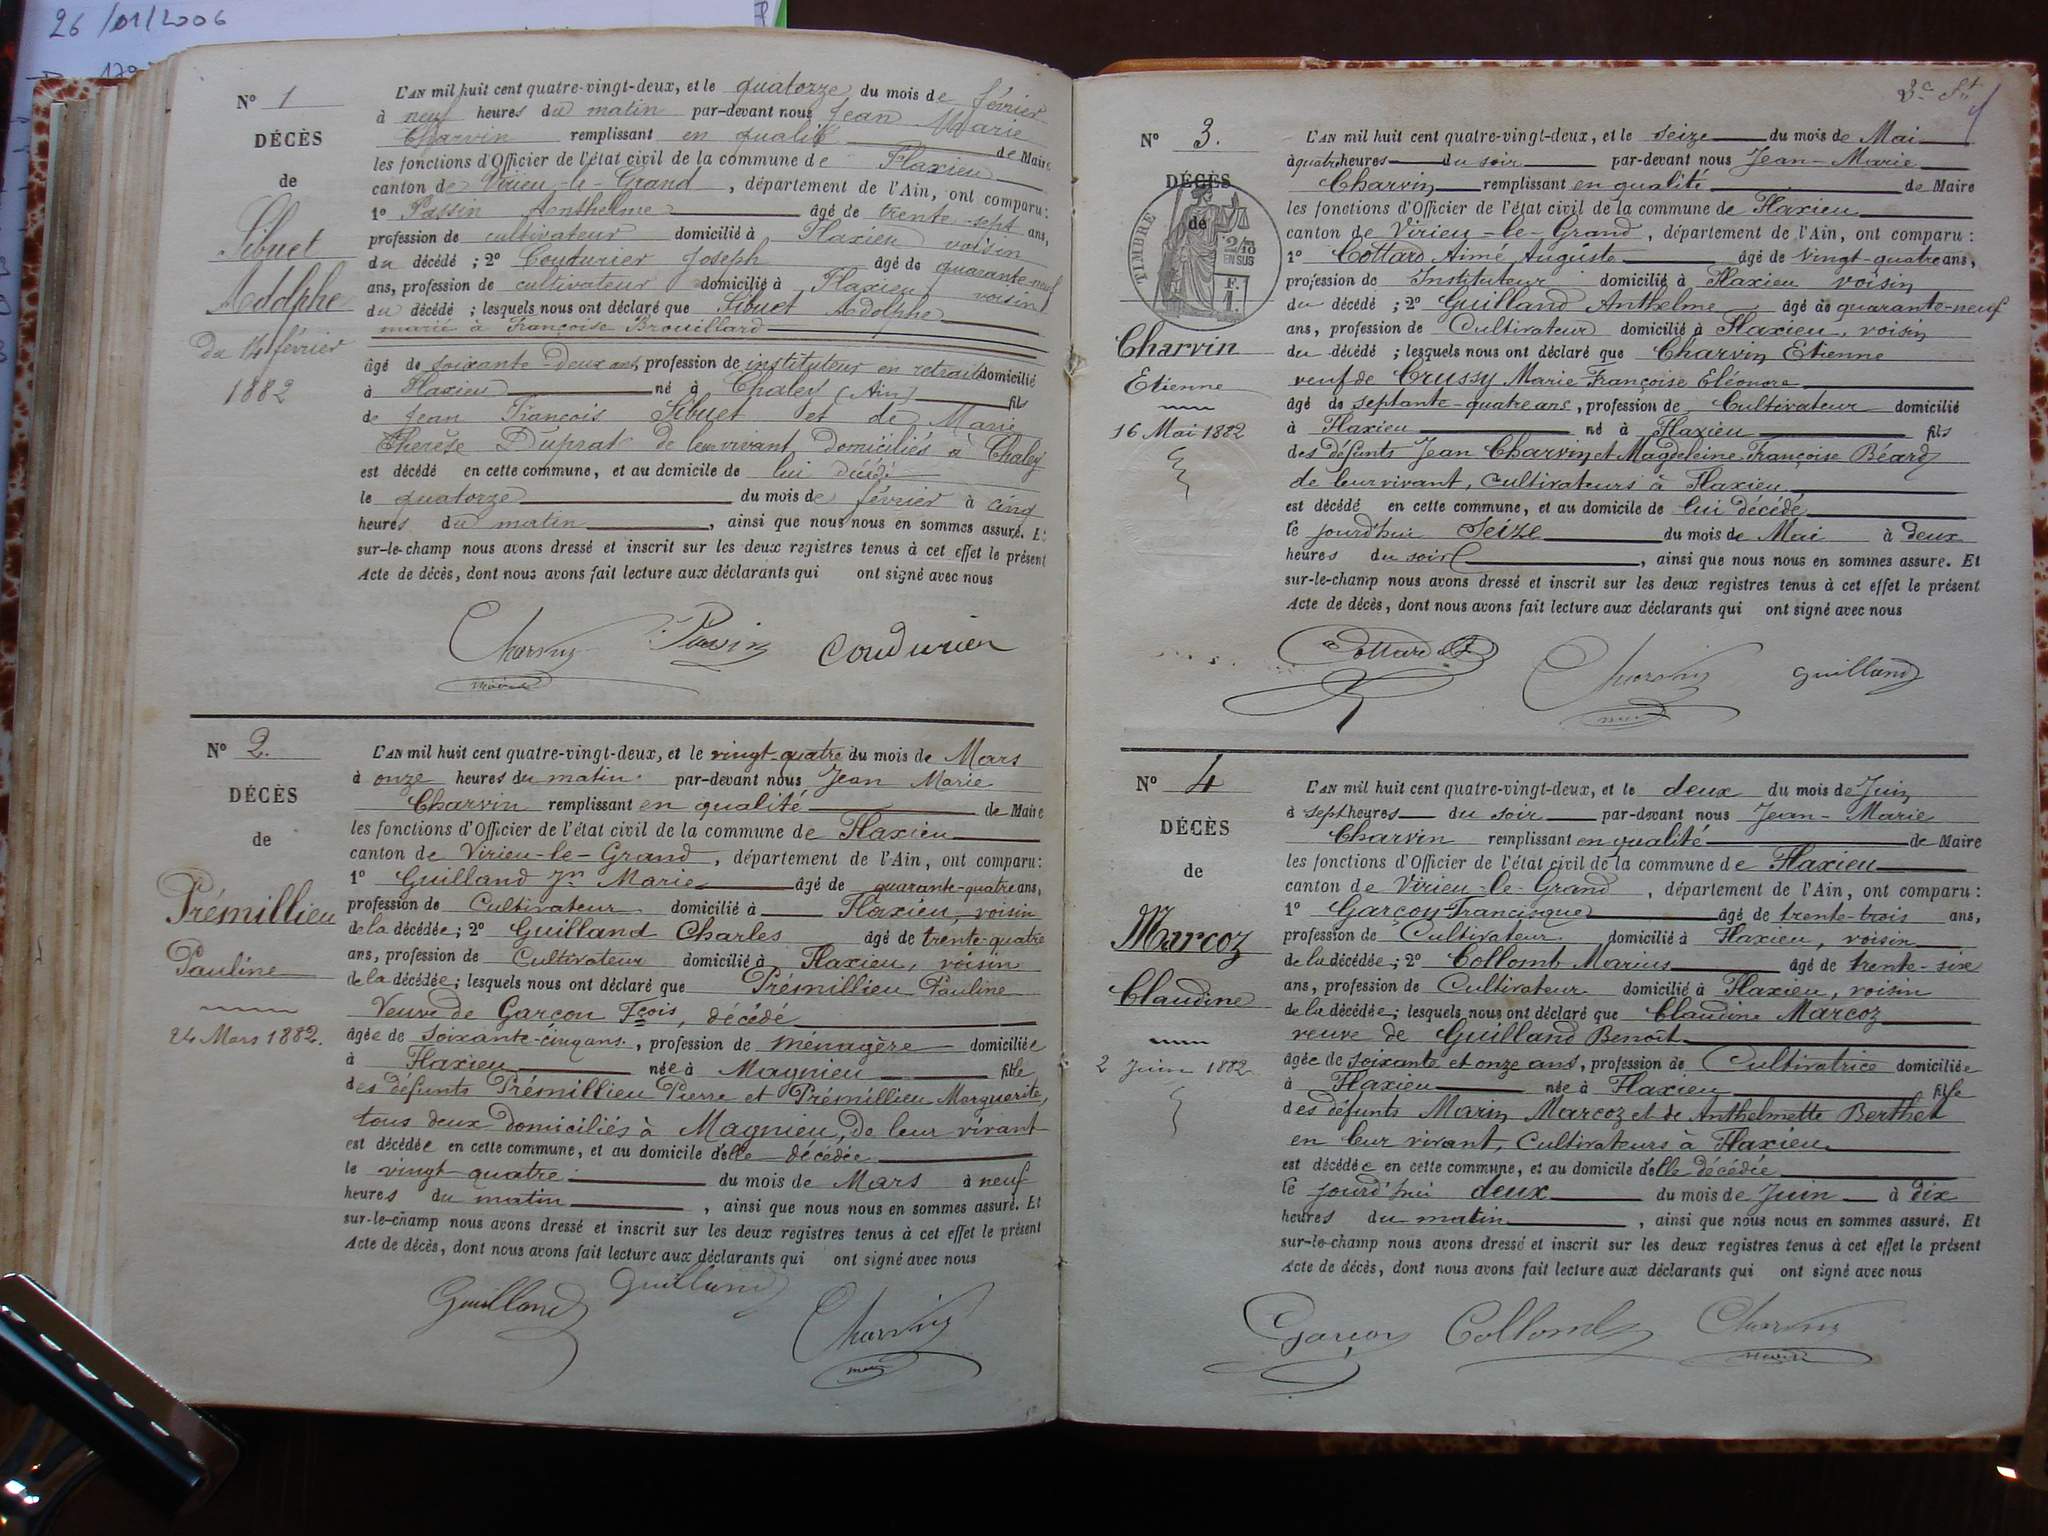 26/01/2006
N° 1
DÉCÈS
de
Sibuet
Adolphe
Du 14 février
1882
L'AN mil huit cent quatre-vingt-deux, et le quatorze du mois de février
à neuf heures du matin par-devant nous Jean Marie
Charvin remplissant en qualité de Maire
les fonctions d'Officier de l'état civil de la commune de Flaxieu
canton de Virieu-le-Grand, département de l'Ain, ont comparu:
1° Passin Anthelme âgé de trente-sept ans,
profession de cultivateur domicilié à Flaxieu voisin
du décédé; 2° Coudurier Joseph âgé de quarante-neuf
ans, profession de cultivateur domicilié à Flaxieu voisin
du décédé; lesquels nous ont déclaré que Sibuet Adolphe
marié à Françoise Brouillard
âgé de soixante-deux ans, profession de instituteur en retraite domicilié
à Flaxieu né à Chaley (Ain) fils
de Jean François Sibuet et de Marie
Therèse Duprat de leur vivant domiciliés à Chaley
est décédé en cette commune, et au domicile de lui décédé
le quatorze du mois de février à cinq
heures du matin, ainsi que nous nous en sommes assuré. Et
sur-le-champ nous avons dressé et inscrit sur les deux registres tenus à cet effet le présent
Acte de décès, dont nous avons fait lecture aux déclarants qui ont signé avec nous
Charvin Passin Coudurier
maire
N° 2.
DÉCÈS
de
Prémillieu
Pauline
24 Mars 1882.
L'AN mil huit cent quatre-vingt-deux, et le vingt-quatre du mois de Mars
à onze heures du matin par-devant nous Jean Marie
Charvin remplissant en qualité de Maire
les fonctions d'Officier de l'état civil de la commune de Flaxieu
canton de Virieu-le-Grand, département de l'Ain, ont comparu:
1° Guilland Jn Marie âgé de quarante-quatre ans,
profession de Cultivateur domicilié à Flaxieu, voisin
de la décédée; 2° Guilland Charles âgé de trente-quatre
ans, profession de Cultivateur domicilié à Flaxieu, voisin
de la décédée; lesquels nous ont déclaré que Prémillieu Pauline
Veuve de Garçon Fçois, décédé
âgée de soixante-cinq ans, profession de ménagère domiciliée
à Flaxieu née à Magnieu fille
des défunts Prémillieu Pierre et Prémillieu Marguerite,
tous deux domiciliés à Magnieu, de leur vivant
est décédée en cette commune, et au domicile d'elle décédée
le vingt quatre du mois de Mars à neuf
heures du matin, ainsi que nous nous en sommes assuré. Et
sur-le-champ nous avons dressé et inscrit sur les deux registres tenus à cet effet le présent
Acte de décès, dont nous avons fait lecture aux déclarants qui ont signé avec nous
Guilland Guilland Charvin
maire
N° 3.
DÉCÈS
de
TIMBRE
2/10
EN SUS
Charvin
Etienne
16 Mai 1882
L'AN mil huit cent quatre-vingt-deux, et le seize du mois de Mai
à quatre heures du soir par-devant nous Jean-Marie
Charvin remplissant en qualité de Maire
les fonctions d'Officier de l'état civil de la commune de Flaxieu
canton de Virieu-le-Grand, département de l'Ain, ont comparu:
1° Cottard Aimé Auguste âgé de vingt-quatre ans,
profession de Instituteur domicilié à Flaxieu voisin
du décédé; 2° Guilland Anthelme âgé de quarante-neuf
ans, profession de Cultivateur domicilié à Flaxieu, voisin
du décédé; lesquels nous ont déclaré que Charvin Etienne
veuf de Crussy Marie Françoise Eléonore
âgé de septante-quatre ans, profession de Cultivateur domicilié
à Flaxieu né à Flaxieu fils
des défunts Jean Charvin et Magdeleine Françoise Béard
de leur vivant, cultivateurs à Flaxieu
est décédé en cette commune, et au domicile de lui décédé
le jourd'hui seize du mois de Mai à deux
heures du soir, ainsi que nous nous en sommes assuré. Et
sur-le-champ nous avons dressé et inscrit sur les deux registres tenus à cet effet le présent
Acte de décès, dont nous avons fait lecture aux déclarants qui ont signé avec nous
Cottard Charvin Guilland
maire
N° 4
DÉCÈS
de
Marcoz
Claudine
2 Juin 1882
L'AN mil huit cent quatre-vingt-deux, et le deux du mois de Juin
à sept heures du soir par-devant nous Jean-Marie
Charvin remplissant en qualité de Maire
les fonctions d'Officier de l'état civil de la commune de Flaxieu
canton de Virieu-le-Grand, département de l'Ain, ont comparu:
1° Garçon Francisque âgé de trente-trois ans,
profession de Cultivateur domicilié à Flaxieu, voisin
de la décédée; 2° Collomb Marius âgé de trente-six
ans, profession de Cultivateur domicilié à Flaxieu, voisin
de la décédée; lesquels nous ont déclaré que Claudine Marcoz
veuve de Guilland Benoît
âgée de soixante et onze ans, profession de Cultivatrice domiciliée
à Flaxieu née à Flaxieu fille
des défunts Marin Marcoz et de Anthelmette Berthet
en leur vivant, Cultivateurs à Flaxieu
est décédée en cette commune, et au domicile d'elle décédée
le jourd'hui deux du mois de Juin à dix
heures du matin, ainsi que nous nous en sommes assuré. Et
sur-le-champ nous avons dressé et inscrit sur les deux registres tenus à cet effet le présent
Acte de décès, dont nous avons fait lecture aux déclarants qui ont signé avec nous
Garçon Collomb Charvin
maire